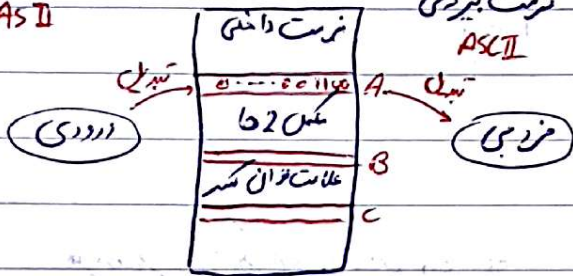 ASII
فرمت بیرونی
ASCII
فرمت داخلی
تبدیل
A
تبدیل
ورودی
مکمل 2 ها
خروجی
B
علامت
C